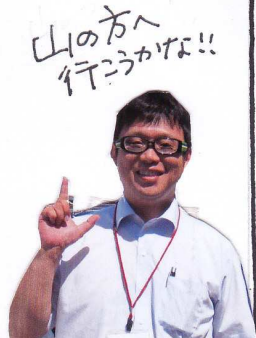 山の方へ
行こうかな!!